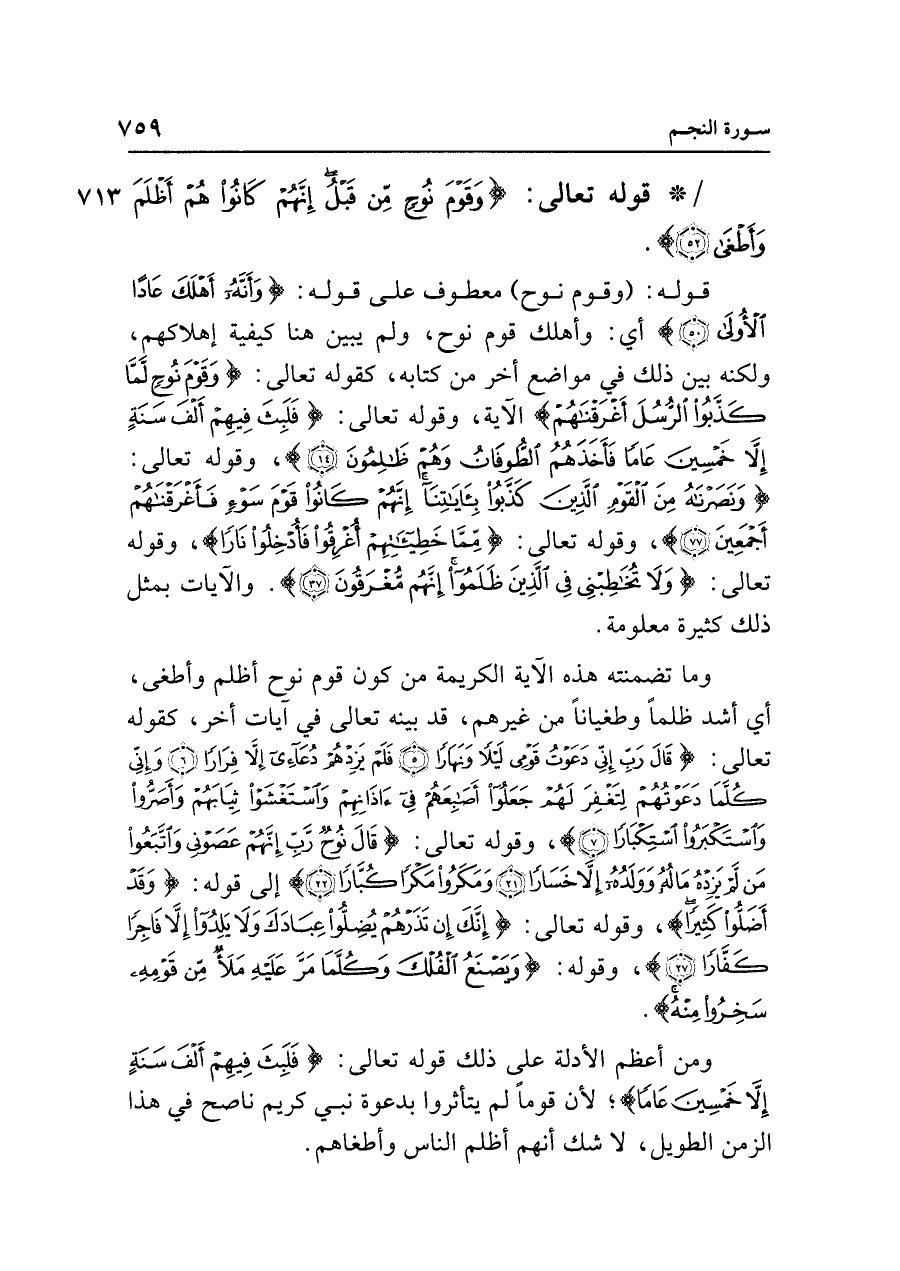 سـورة النجـم ٧٥٩
/ * قوله تعالى: ﴿ وَقَوْمَ نُوحٍ مِّن قَبْلُ ۖ إِنَّهُمْ كَانُوا۟ هُمْ أَظْلَمَ ٧١٣
وَأَطْغَىٰ ﴿٥٢﴾﴾ .
قولـه: (وقـوم نـوح) معطـوف علـى قـولـه: ﴿ وَأَنَّهُۥٓ أَهْلَكَ عَادًا
ٱلْأُولَىٰ ﴿٥٠﴾﴾ أي: وأهلك قوم نوح، ولم يبين هنا كيفية إهلاكهم،
ولكنه بين ذلك في مواضع أخر من كتابه، كقوله تعالى: ﴿ وَقَوْمَ نُوحٍ لَّمَّا
كَذَّبُوا۟ ٱلرُّسُلَ أَغْرَقْنَـٰهُمْ﴾ الآية، وقوله تعالى: ﴿ فَلَبِثَ فِيهِمْ أَلْفَ سَنَةٍ
إِلَّا خَمْسِينَ عَامًا فَأَخَذَهُمُ ٱلطُّوفَانُ وَهُمْ ظَـٰلِمُونَ ﴿١٤﴾﴾، وقوله تعالى:
﴿ وَنَصَرْنَـٰهُ مِنَ ٱلْقَوْمِ ٱلَّذِينَ كَذَّبُوا۟ بِـَٔايَـٰتِنَآ ۚ إِنَّهُمْ كَانُوا۟ قَوْمَ سَوْءٍ فَأَغْرَقْنَـٰهُمْ
أَجْمَعِينَ ﴿٧٧﴾﴾، وقوله تعالى: ﴿ مِّمَّا خَطِيٓـَٔـٰتِهِمْ أُغْرِقُوا۟ فَأُدْخِلُوا۟ نَارًا﴾، وقوله
تعالى: ﴿ وَلَا تُخَـٰطِبْنِى فِى ٱلَّذِينَ ظَلَمُوٓا۟ ۚ إِنَّهُم مُّغْرَقُونَ ﴿٣٧﴾﴾. والآيات بمثل
ذلك كثيرة معلومة.
وما تضمنته هذه الآية الكريمة من كون قوم نوح أظلم وأطغى،
أي أشد ظلماً وطغياناً من غيرهم، قد بينه تعالى في آيات أخر، كقوله
تعالى: ﴿ قَالَ رَبِّ إِنِّى دَعَوْتُ قَوْمِى لَيْلًا وَنَهَارًا ﴿٥﴾ فَلَمْ يَزِدْهُمْ دُعَآءِىٓ إِلَّا فِرَارًا ﴿٦﴾ وَإِنِّى
كُلَّمَا دَعَوْتُهُمْ لِتَغْفِرَ لَهُمْ جَعَلُوٓا۟ أَصَـٰبِعَهُمْ فِىٓ ءَاذَانِهِمْ وَٱسْتَغْشَوْا۟ ثِيَابَهُمْ وَأَصَرُّوا۟
وَٱسْتَكْبَرُوا۟ ٱسْتِكْبَارًا ﴿٧﴾﴾، وقوله تعالى: ﴿ قَالَ نُوحٌ رَّبِّ إِنَّهُمْ عَصَوْنِى وَٱتَّبَعُوا۟
مَن لَّمْ يَزِدْهُ مَالُهُۥ وَوَلَدُهُۥٓ إِلَّا خَسَارًا ﴿٢١﴾ وَمَكَرُوا۟ مَكْرًا كُبَّارًا ﴿٢٢﴾﴾ إلى قوله: ﴿ وَقَدْ
أَضَلُّوا۟ كَثِيرًا ۖ﴾، وقوله تعالى: ﴿ إِنَّكَ إِن تَذَرْهُمْ يُضِلُّوا۟ عِبَادَكَ وَلَا يَلِدُوٓا۟ إِلَّا فَاجِرًا
كَفَّارًا ﴿٢٧﴾﴾، وقوله: ﴿ وَيَصْنَعُ ٱلْفُلْكَ وَكُلَّمَا مَرَّ عَلَيْهِ مَلَأٌ مِّن قَوْمِهِۦ
سَخِرُوا۟ مِنْهُ ۚ﴾ .
ومن أعظم الأدلة على ذلك قوله تعالى: ﴿ فَلَبِثَ فِيهِمْ أَلْفَ سَنَةٍ
إِلَّا خَمْسِينَ عَامًا﴾؛ لأن قوماً لم يتأثروا بدعوة نبـي كريم ناصح في هذا
الزمن الطويل، لا شك أنهم أظلم الناس وأطغاهم.